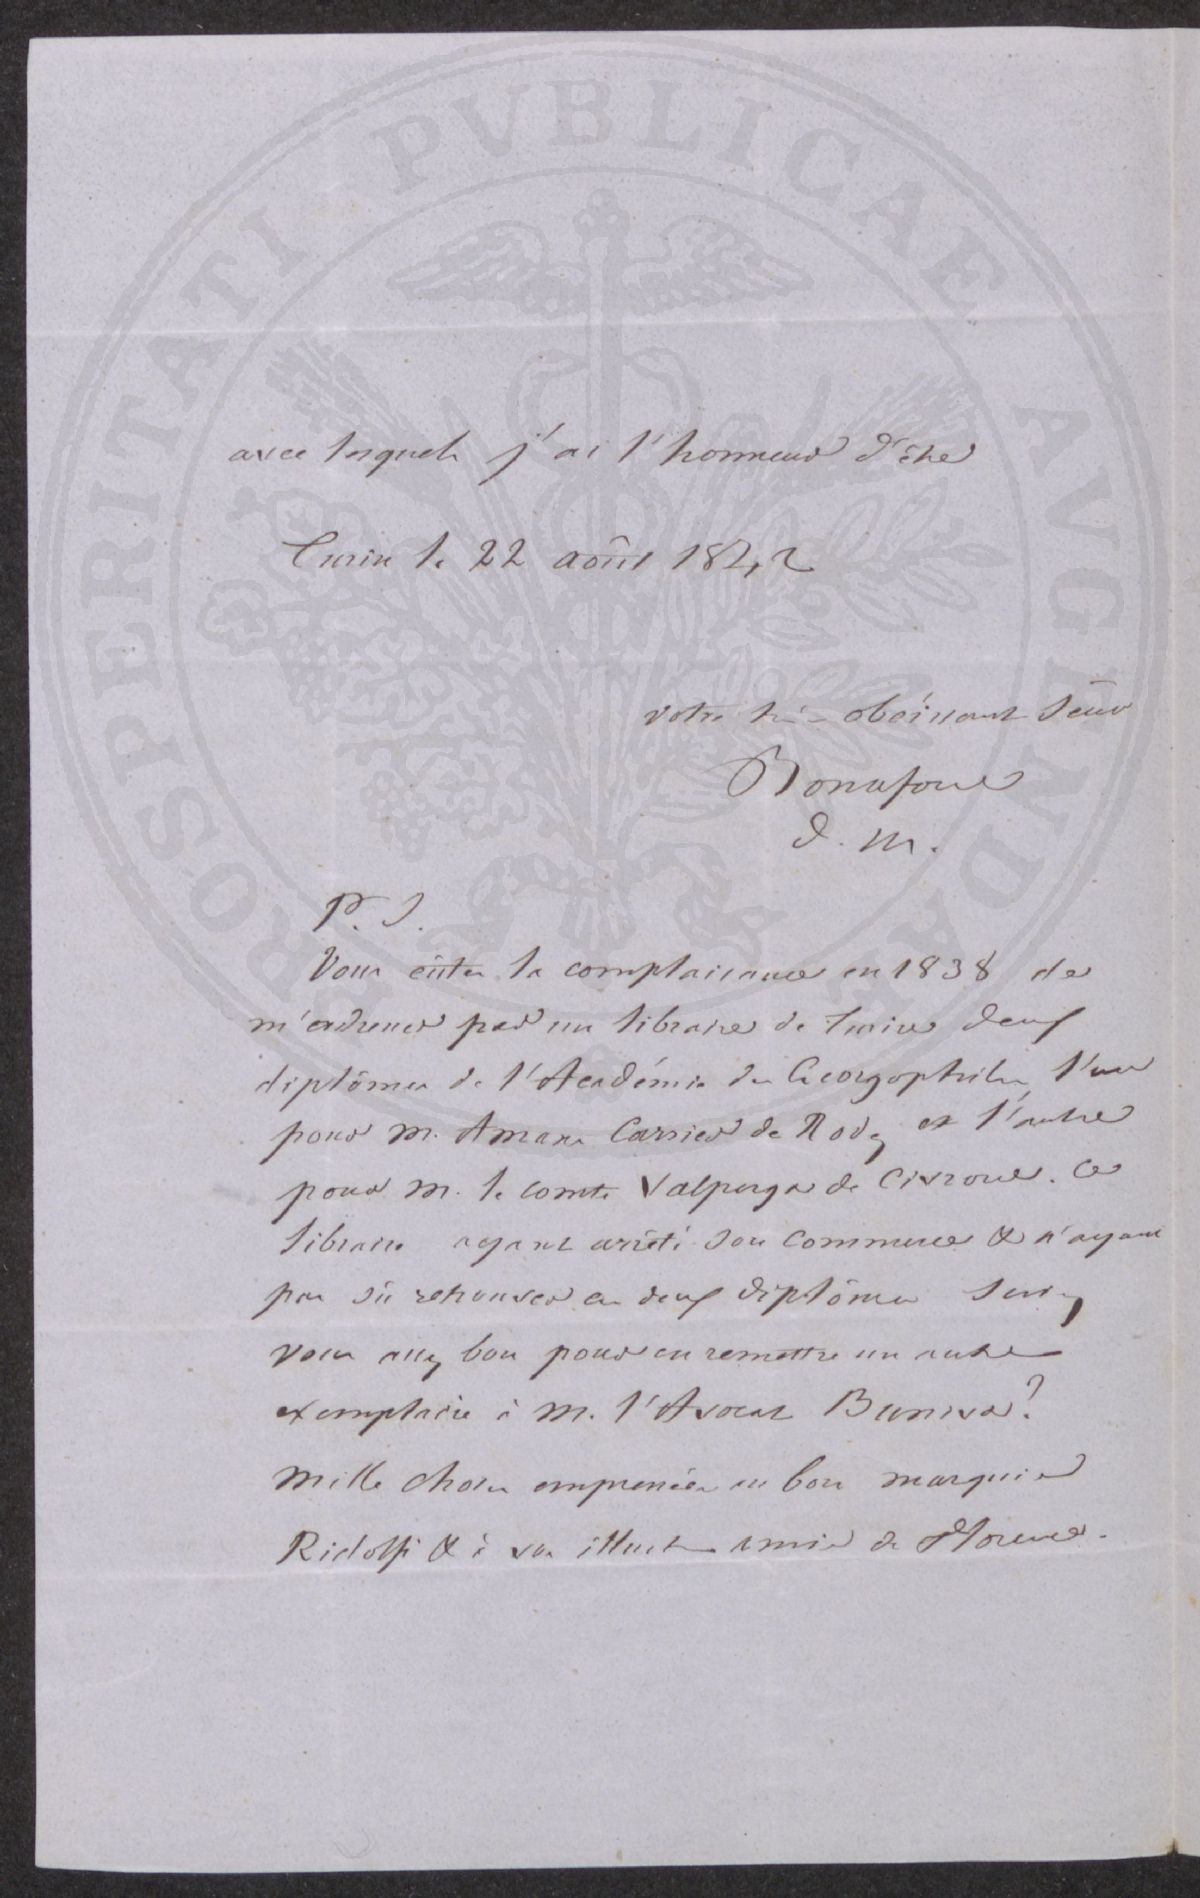 PROSPERITATI PVBLICAE AVGENDAE
avec lesquels j'ai l'honneur d'être
Turin le 22 août 1842
votre très obéissant Serv
Bonafous
d. m.
P. S.
Vous eûtes la complaisance en 1838 de
m'adresser par un libraire de Turin deux
diplômes de l'Académie des Georgophiles, l'un
pour M. Amans Carrier de Rodez et l'autre
pour M. le comte Valperga de Civrone. Ce
libraire ayant arrêté son commerce & n'ayant
pas sû retrouver ces deux diplômes seriez
vous assez bon pour en remettre un autre
exemplaire à M. l'Avocat Buniva?
Mille choses empressées au bon marquis
Ridolfi & à vos illustres amis de Florence.